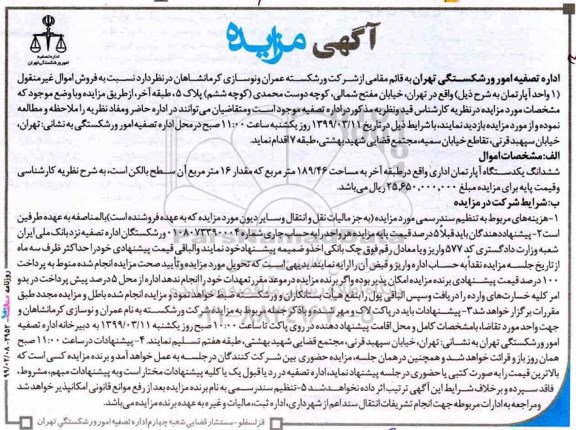 آگهی مزایده
اداره تصفیه
امور ورشکستگی تهران
اداره تصفیه امور ورشکستگی تهران به قائم مقامی از شرکت ورشکسته عمران و نوسازی کرمانشاهان در نظر دارد نسبت به فروش اموال غیر منقول
(۱ واحد آپارتمان به شرح ذیل) واقع در تهران، خیابان مفتح شمالی، کوچه دوست محمدی (کوچه ششم) پلاک ۵، طبقه آخر، از طریق مزایده و با وضع موجود که
مشخصات مورد مزایده در نظریه کارشناس قید و نظریه مذکور در اداره تصفیه موجود است و متقاضیان می‌توانند در اداره حاضر و مفاد نظریه را ملاحظه و مطالعه
نموده و از مورد مزایده بازدید نمایند، با شرایط ذیل در تاریخ ۱۳۹۹/۰۳/۱۱ روز یکشنبه ساعت ۱۱:۰۰ صبح در محل اداره تصفیه امور ورشکستگی به نشانی: تهران،
خیابان سپهبد قرنی، تقاطع خیابان سمیه، مجتمع قضایی شهید بهشتی، طبقه ۷ اقدام نماید.
الف: مشخصات اموال
ششدانگ یکدستگاه آپارتمان اداری واقع در طبقه آخر به مساحت ۱۸۹/۴۶ متر مربع که مقدار ۱۶ متر مربع آن سطح بالکن است، به شرح نظریه کارشناسی
وقیمت پایه برای مزایده مبلغ ۲۵,۶۵۰,۰۰۰,۰۰۰ ریال می‌باشد.
ب: شرایط شرکت در مزایده
۱- هزینه‌های مربوط به تنظیم سند رسمی مورد مزایده (به جز مالیات نقل و انتقال و سایر دیون مورد مزایده که به عهده فروشنده است) بالمناصفه به عهده طرفین
است ۲- پیشنهاددهندگان باید قبلاً ۵ درصد قیمت پایه مزایده هر واحد را به حساب جاری شماره ۰۱۰۸۰۷۳۳۹۰۰۰۴ ورشکستگان اداره تصفیه نزد بانک ملی ایران
شعبه وزارت دادگستری کد ۵۷۷ واریز و یا معادل رقم فوق چک بانکی اخذ و ضمیمه پیشنهاد خود نمایند والباقی قیمت پیشنهادی خود را حداکثر ظرف سه ماه
از تاریخ جلسه مزایده نقداً به حساب اداره واریز و قبض آن را ارایه نمایند، بدیهی است که تحویل مورد مزایده و تأیید صحت مزایده انجام شده منوط به پرداخت
۱۰۰ درصد قیمت پیشنهادی برنده مزایده امکان پذیر بوده و اگر برنده مزایده در موعد مقرر تعهدات خود را انجام ندهد اداره از محل ۵ درصد پیش پرداخت در بدو
امر کلیه خسارت‌های وارده را دریافت و سپس الباقی پول را بنفع هیأت بستانکاران ورشکسته ضبط خواهد نمود و مزایده انجام شده باطل و مزایده مجدد طبق
مقررات برگزار خواهد شد ۳- پیشنهادات باید در پاکت لاک و مهر شده و روی پاکت قید گردد مربوط به مزایده شرکت ورشکسته به نام عمران و نوسازی کرمانشاهان و
جهت واحد مورد تقاضا، با مشخصات کامل و محل اقامت پیشنهاد دهنده در روی پاکت تا ساعت ۱۰:۰۰ صبح روز یکشنبه ۱۳۹۹/۰۳/۱۱ به دبیرخانه اداره تصفیه
امور ورشکستگی به نشانی: تهران، خیابان سپهبد قرنی، مجتمع قضایی شهید بهشتی، طبقه هفتم تسلیم نمایند. ۴- پیشنهادات در ساعت ۱۱:۰۰ صبح
همان روز باز و قرائت خواهد شد و همچنین در همان جلسه، مزایده حضوری بین شرکت کنندگان در جلسه به عمل خواهد آمد و برنده مزایده کسی است که
بالاترین قیمت را به صورت کتبی یا حضوری در جلسه پیشنهاد نماید، اداره تصفیه در رد یا قبول یک یا کلیه پیشنهادات مختار است و به پیشنهادات مبهم، مشروط،
فاقد سپرده و بر خلاف شرایط این آگهی ترتیب اثر داده نخواهد شد ۵- تنظیم سند رسمی به نام برنده مزایده بعد از رفع موانع قانونی امکانپذیر خواهد شد
و مراجعه به ادارات مربوطه جهت انجام تشریفات انتقال سند اعم از شهرداری، اداره ثبت، مالیات و غیره به عهده برنده مزایده می‌باشد.
قزلسفلو - مستشار قضایی شعبه چهارم اداره تصفیه امور ورشکستگی تهران
روزنامه ۲۹۵۲ - ۹۹/۰۲/۰۸